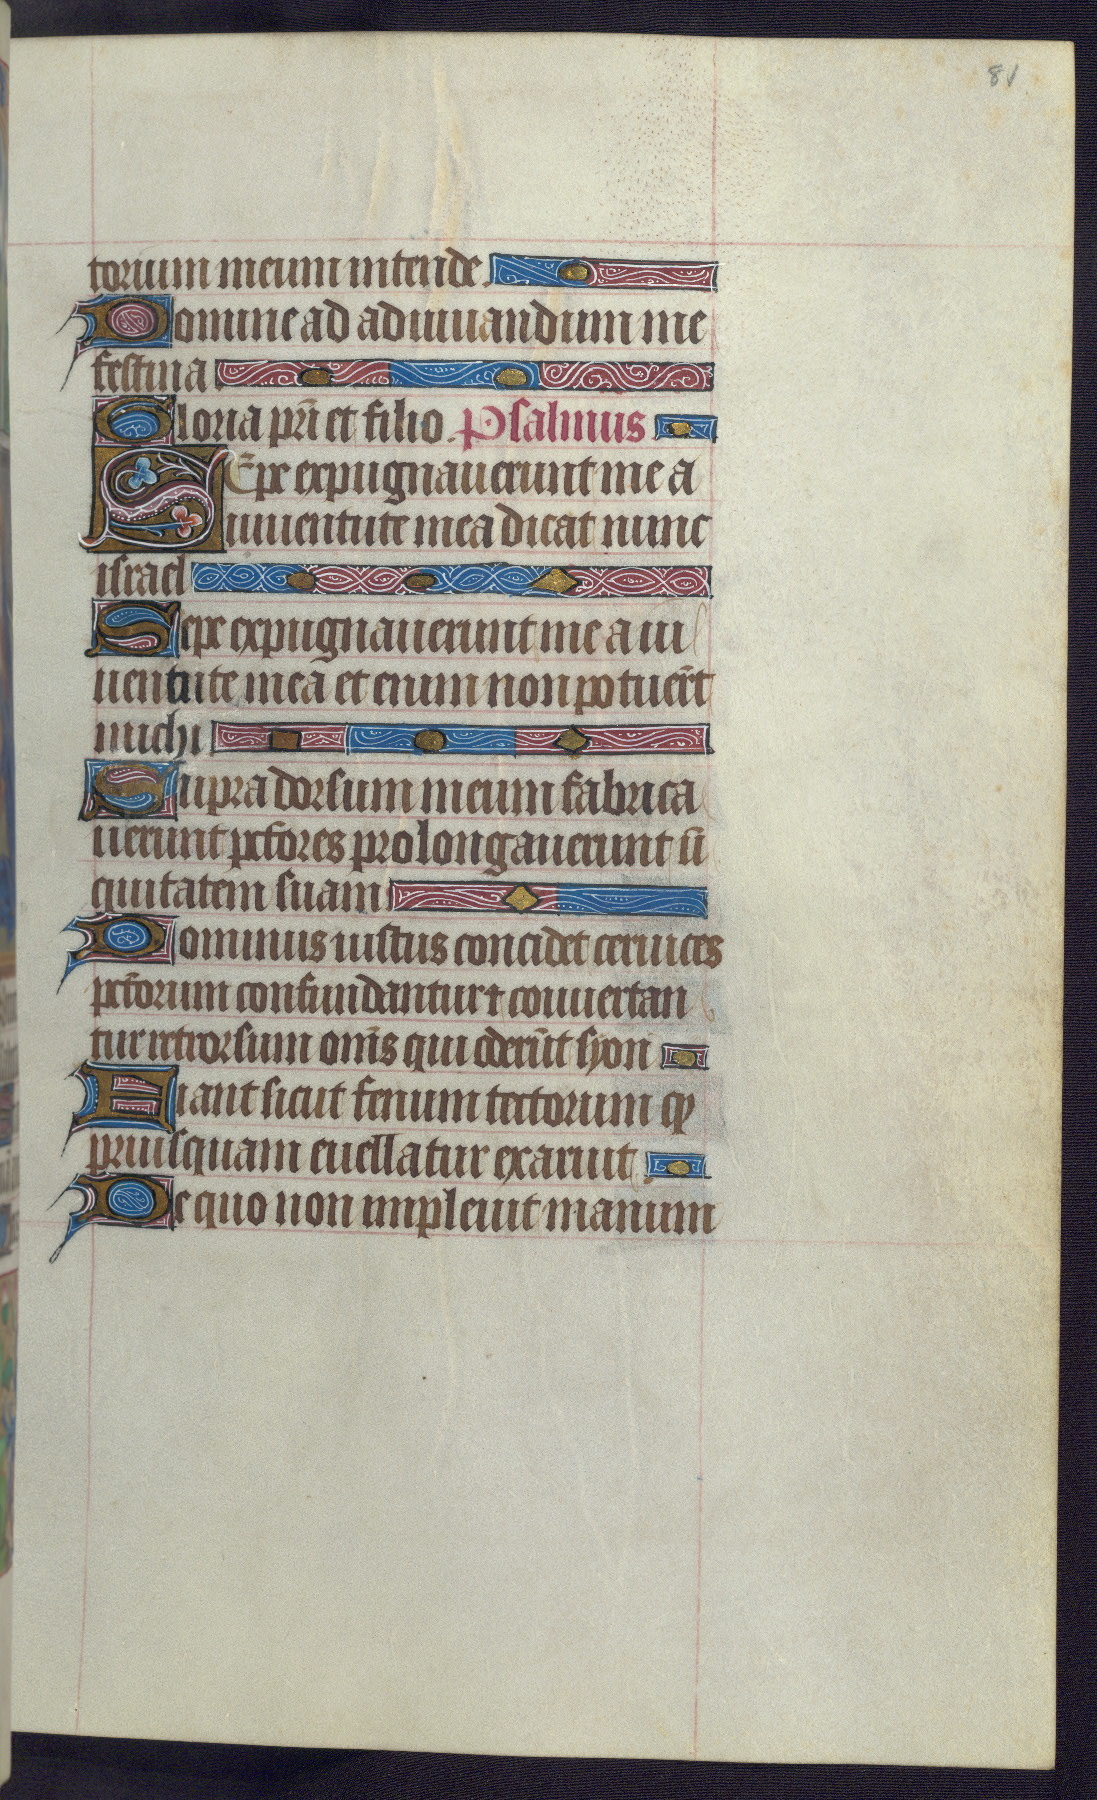 81
torium meum intende.
Domine ad adiuuandum me
festina
Gloria pr̄i et filio. Psalmus
SEpe expugnauerunt me a
iuuentute mea dicat nunc
israel
Sepe expugnauerunt me a iu
uentute mea et enim non potuer̄t
michi
Supra dorsum meum fabrica
uerunt pc̄tores prolongauerunt in
quitatem suam
Dominus iustus concidet ceruices
pc̄torum confundantur ⁊ conuertan
tur retrorsum om̄s qui oderūt syon
Fiant sicut fenum tectorum qꝫ
priusquam euellatur exaruit
De quo non impleuit manum